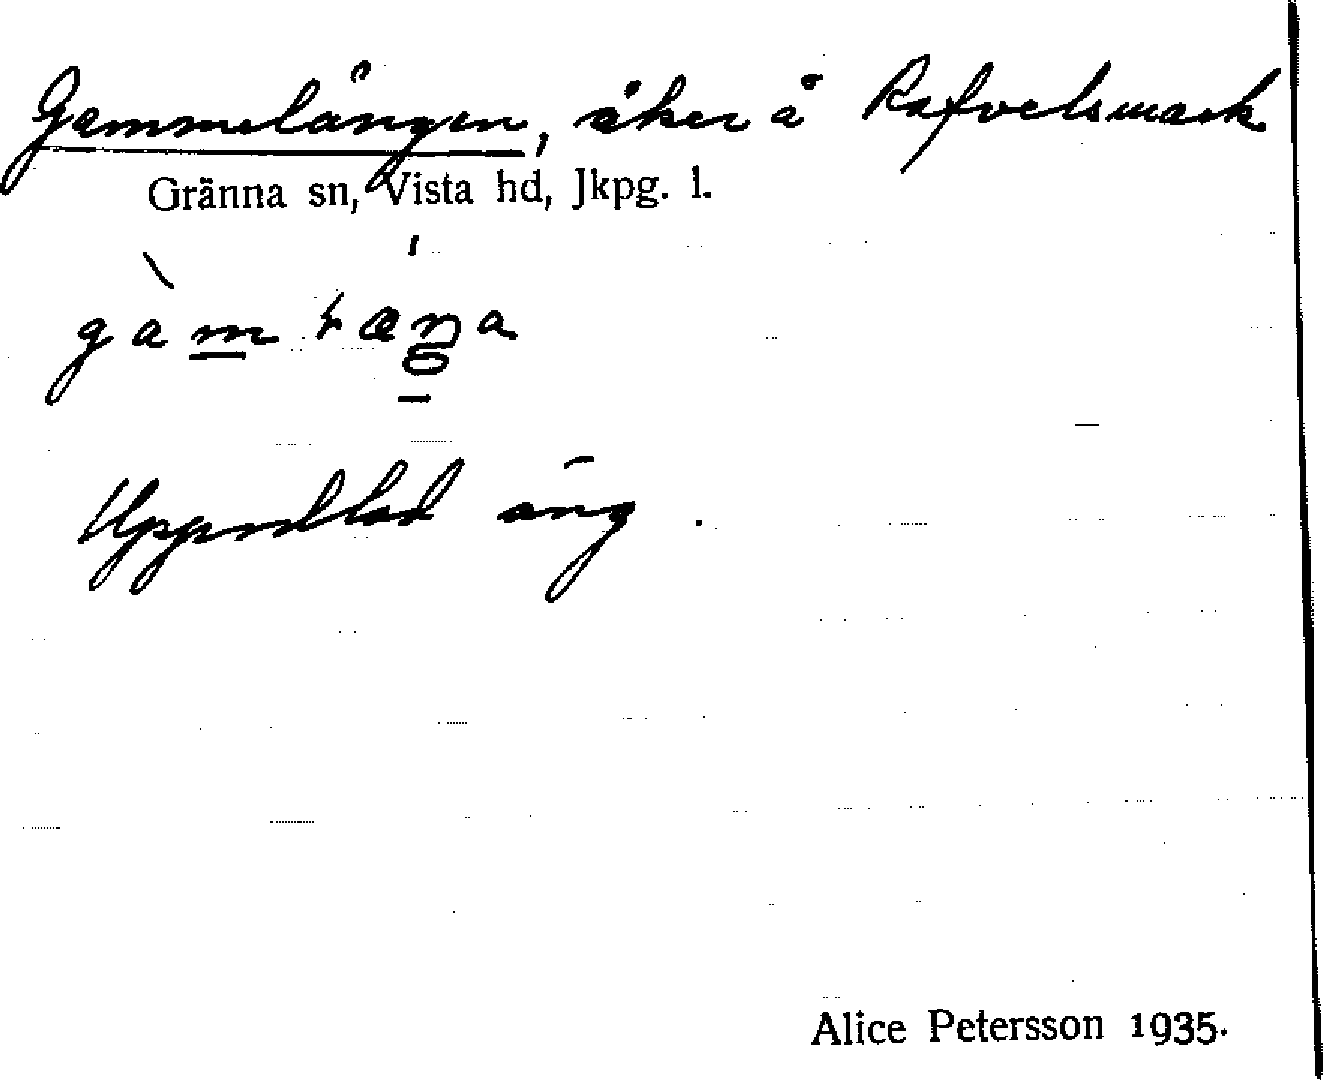 Gammelängen, åker å Rafvelsmark
Gränna sn, Vista hd, Jkpg. l.
Uppodlad äng.
Alice Petersson 1935.